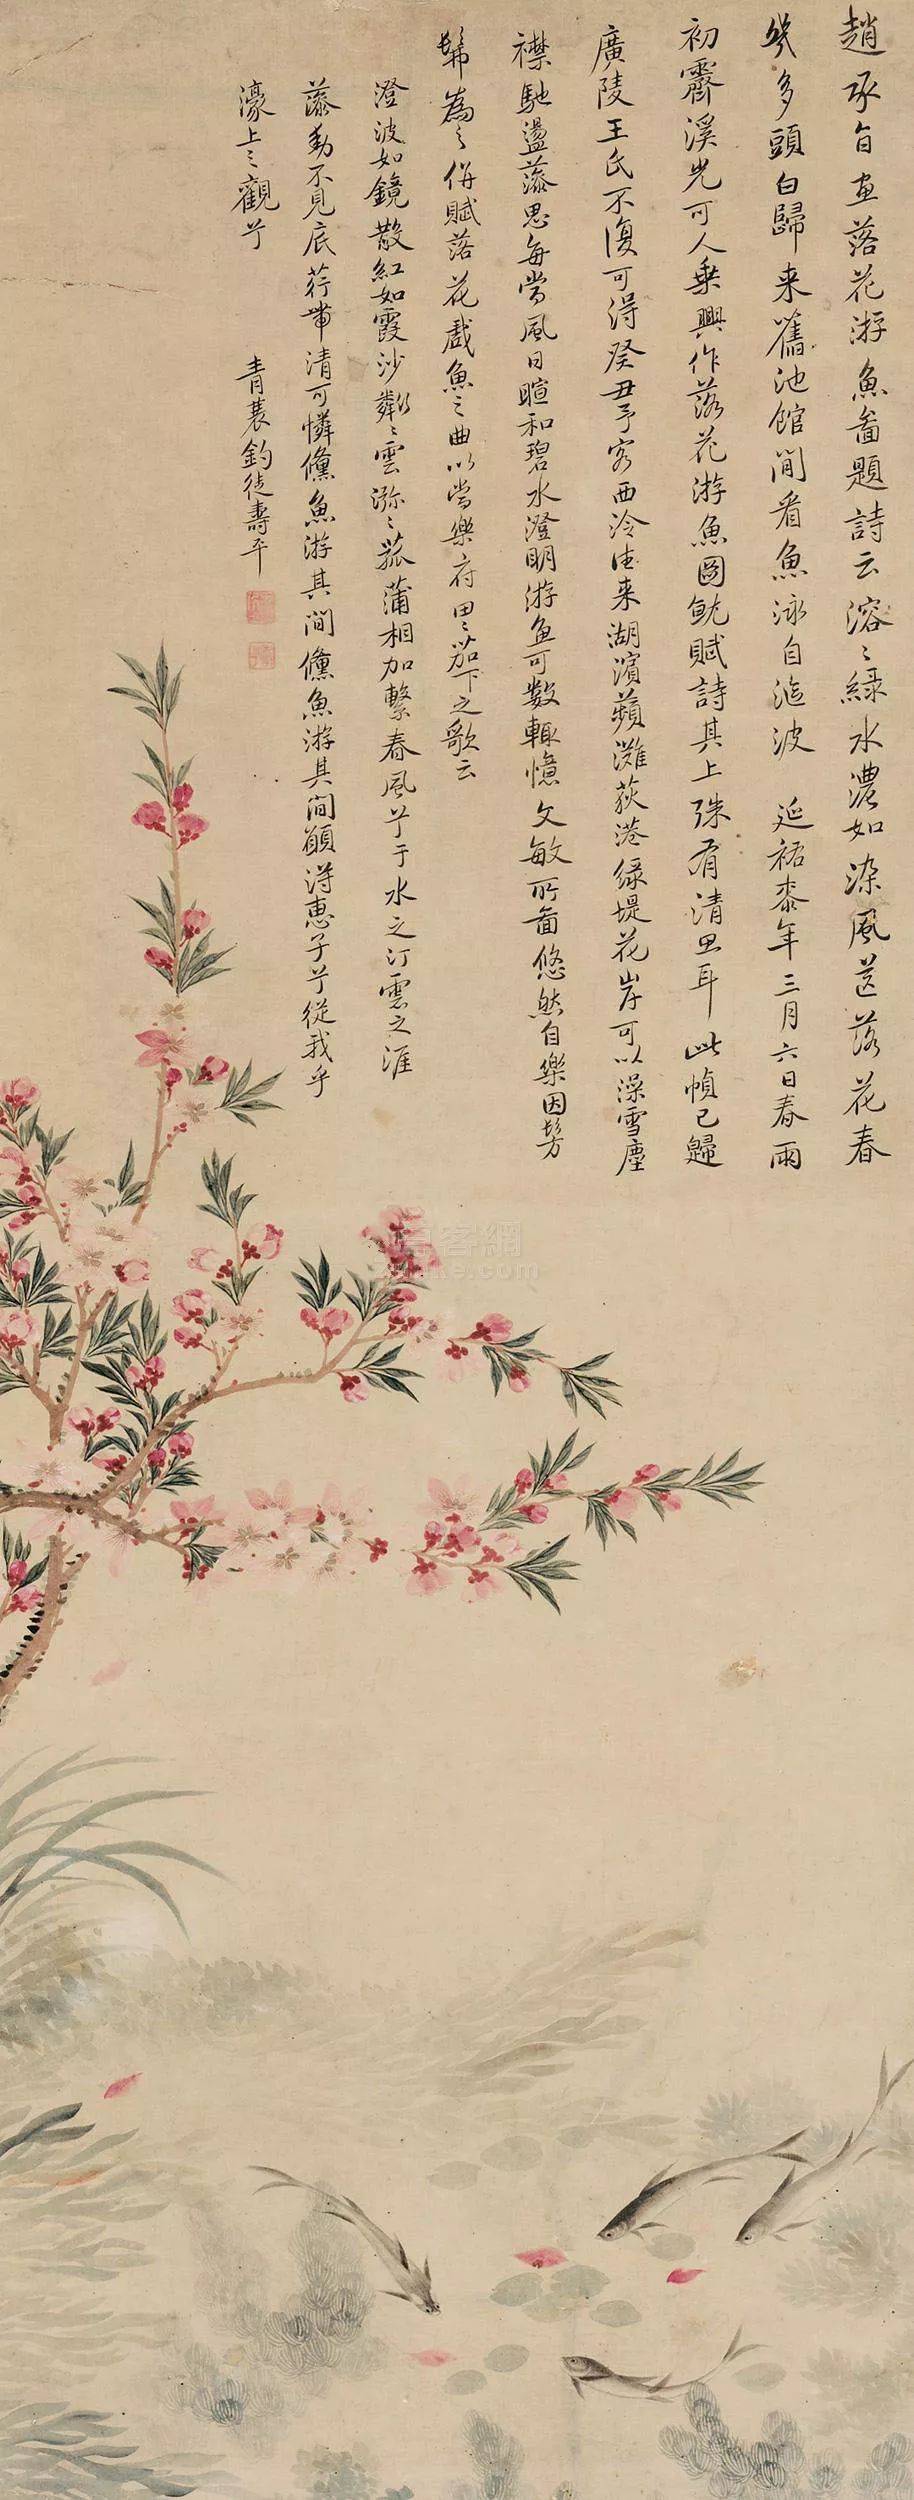 趙承旨畫落花游魚啚題詩云溶〻緑水濃如染風送落花春
幾多頭白歸来舊池館閒看魚泳自㳂波　延祐柒年三月六日春雨
初霽溪光可人乗興作落花游魚圖就賦詩其上殊有清思耳此幀已歸
廣陵王氏不復可得癸丑予客西泠徃来湖濱蘋灘荻港緑堤花岸可以澡雪塵
襟馳盪藻思每當風日暄和碧水澄明游魚可數輒憶文敏所啚悠然自樂因髣
髴為之併賦落花戲魚之曲以當樂府田〻茄下之歌云
澄波如鏡散紅如霞沙粼〻雲瀰〻菰蒲相加繫春風兮于水之汀雲之涯
藻動不見底荇帶清可憐儵魚游其間儵魚游其間願得惠子兮從我乎
濠上之觀兮
青蓑釣徒壽平